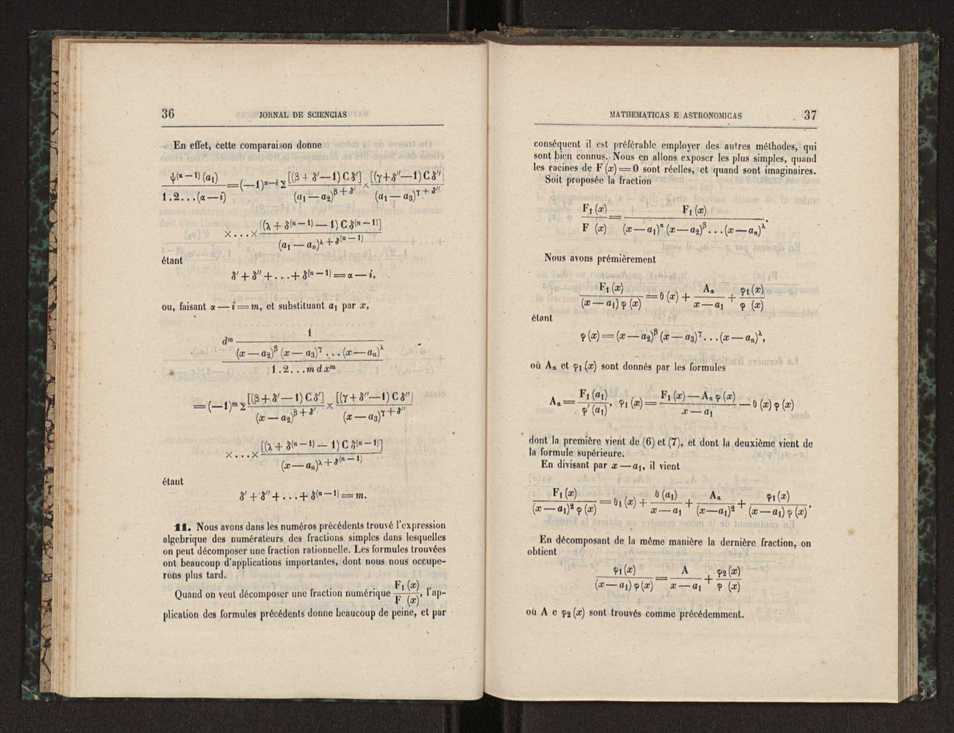 36 JORNAL DE SCIENCIAS
En effet, cette comparaison donne
ψ⁽ⁿ⁻¹⁾(a₁) / 1.2...(α—i) = (—1)ⁿ⁻ⁱ Σ [(β+δ′—1) C δ′] / (a₁—a₂)^(β+δ′) × [(γ+δ″—1) C δ″] / (a₁—a₃)^(γ+δ″)
×...× [(λ+δ⁽ⁿ⁻¹⁾—1) C δ⁽ⁿ⁻¹⁾] / (a₁—aₙ)^(λ+δ⁽ⁿ⁻¹⁾)
étant
δ′+δ″+...+δ⁽ⁿ⁻¹⁾=α—i,
ou, faisant α—i=m, et substituant a₁ par x,
dᵐ 1 / (x—a₂)^β (x—a₃)^γ ...(x—aₙ)^λ
1.2...m dxᵐ
=(—1)ᵐ Σ [(β+δ′—1) C δ′] / (x—a₂)^(β+δ′) × [(γ+δ″—1) C δ″] / (x—a₃)^(γ+δ″)
×...× [(λ+δ⁽ⁿ⁻¹⁾—1) C δ⁽ⁿ⁻¹⁾] / (x—aₙ)^(λ+δ⁽ⁿ⁻¹⁾)
étant
δ′+δ″+...+δ⁽ⁿ⁻¹⁾=m.
11. Nous avons dans les numéros précédents trouvé l'expression
algebrique des numérateurs des fractions simples dans lesquelles
on peut décomposer une fraction rationnelle. Les formules trouvées
ont beaucoup d'applications importantes, dont nous nous occupe-
rons plus tard.
Quand on veut décomposer une fraction numérique F₁(x) / F(x), l'ap-
plication des formules précédents donne beaucoup de peine, et par
MATHEMATICAS E ASTRONOMICAS 37
conséquent il est préférable employer des autres méthodes, qui
sont bien connus. Nous en allons exposer les plus simples, quand
les racines de F(x)=0 sont réelles, et quand sont imaginaires.
Soit proposée la fraction
F₁(x) / F(x) = F₁(x) / (x—a₁)^α (x—a₂)^β...(x—aₙ)^λ.
Nous avons prémièrement
F₁(x) / (x—a₁) φ(x) = θ(x) + Aₐ / x—a₁ + φ₁(x) / φ(x)
étant
φ(x)=(x—a₂)^β (x—a₃)^γ...(x—aₙ)^λ,
où Aₐ et φ₁(x) sont donnés par les formules
Aₐ = F₁(a₁) / φ′(a₁), φ₁(x) = F₁(x)—Aₐ φ(x) / x—a₁ —θ(x) φ(x)
dont la première vient de (6) et (7), et dont la deuxième vient de
la formule supérieure.
En divisant par x—a₁, il vient
F₁(x) / (x—a₁)² φ(x) = θ₁(x) + θ(a₁) / x—a₁ + Aₐ / (x—a₁)² + φ₁(x) / (x—a₁) φ(x).
En décomposant de la même manière la dernière fraction, on
obtient
φ₁(x) / (x—a₁) φ(x) = A / x—a₁ + φ₂(x) / φ(x)
où A e φ₂(x) sont trouvés comme précédemment.